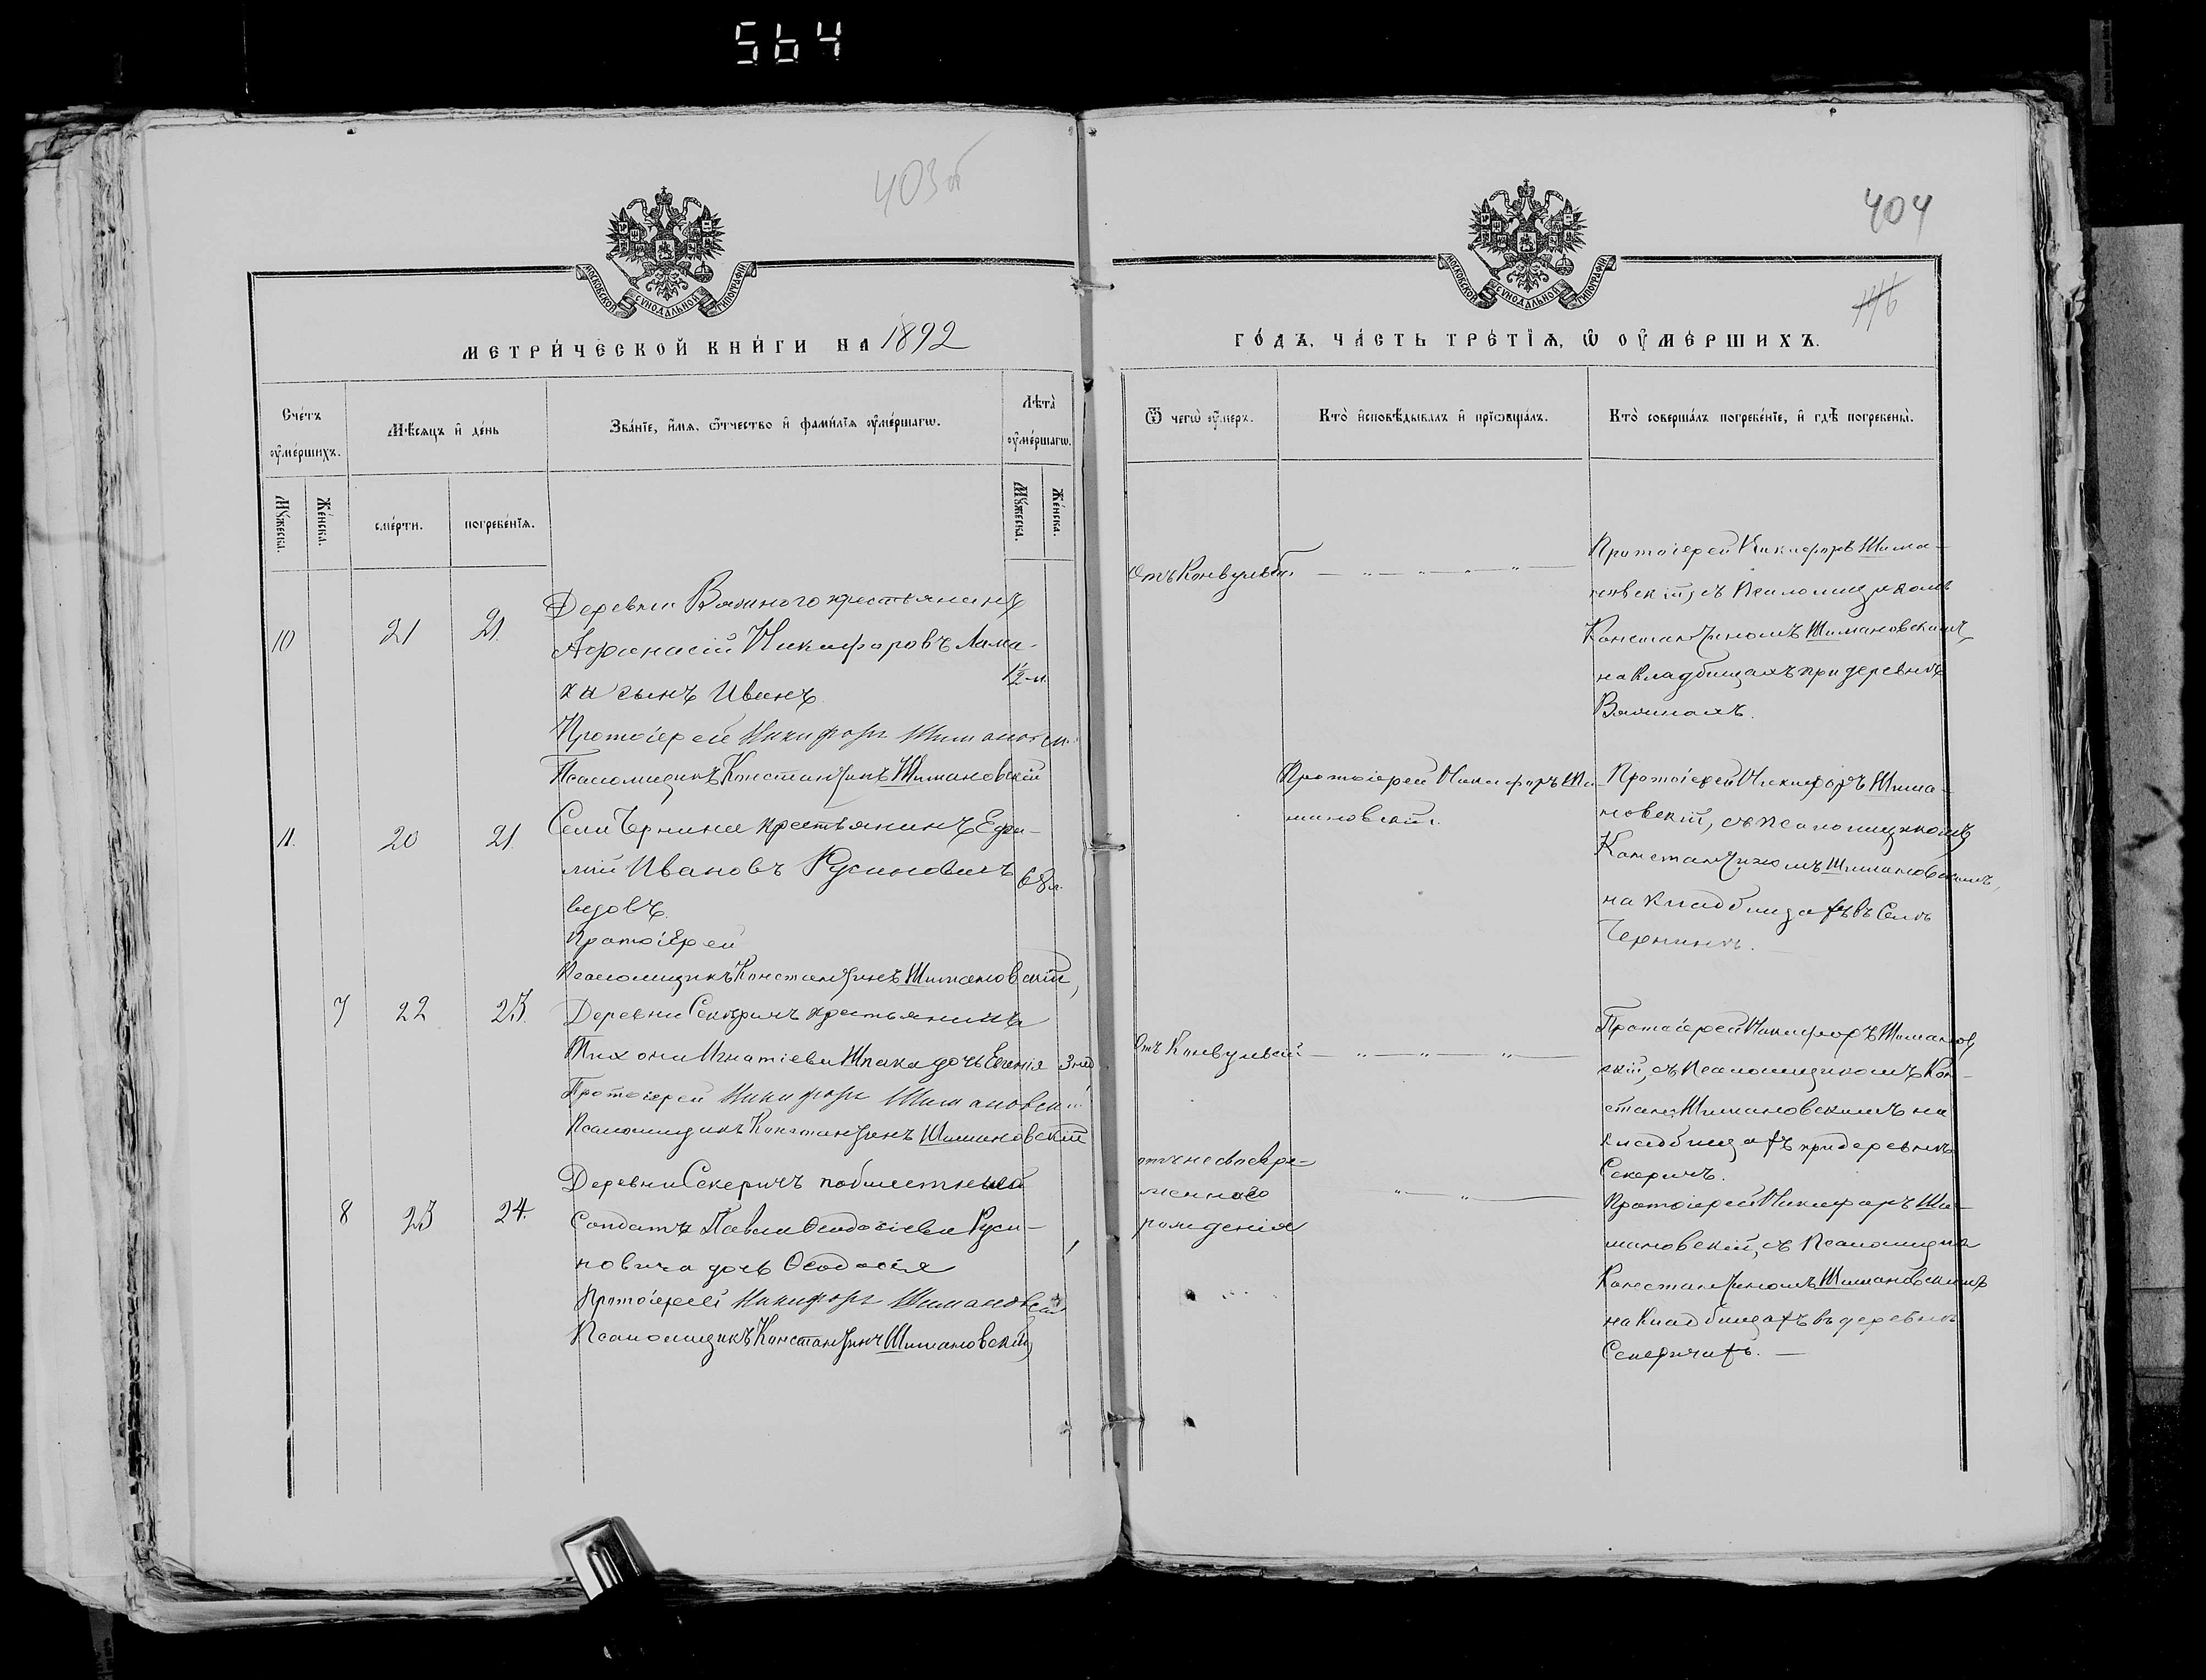 564
403об
404
116
МОСКОВСКОЙ СѴНОДАЛЬНОЙ ТИПОГРАФІИ
МОСКОВСКОЙ СѴНОДАЛЬНОЙ ТИПОГРАФІИ
МЕТРИ́ЧЕСКОЙ КНИ́ГИ НА 1892
ГО́ДЪ, ЧА́СТЬ ТРЕ́ТЇѦ, Ѡ҆ ОУ҆МЕ́РШИХЪ.
Сче́тъ
оу҆ме́ршихъ.
Мꙋ́жеска.
Же́нска.
Мѣ́сѧцъ и҆ де́нь
сме́рти.
погребе́нїѧ.
Зва́нїе, и҆́мѧ, ѻ҆́тчество и҆ фами́лїѧ оу҆ме́ршагѡ.
Лѣ́та
оу҆ме́ршагѡ.
Мꙋ́жеска.
Же́нска.
Ѿ чегѡ̀ оу҆́меръ.
Кто̀ и҆сповѣ́дывалъ и҆ прїѡбща́лъ.
Кто̀ соверша́лъ погребе́нїе, и҆ гдѣ̀ погребены̀.
10
21
21.
Деревни Вячиного крестьянина
Афанасій Никифоровъ Лома-
ха сынъ Иванъ
Протоіерей Никифоръ Шиманов
Псаломщикъ Константинъ Шимановскій
1/2-м.
Отъ Конвульсій
Протоіерей Никифоръ Шима-
новскій, съ Псаломщикомъ
Константиномъ Шимановскимъ,
на кладбищахъ при деревнѣ
Вячиномъ.
11.
20
21.
Села Чернина крестьянинъ Ефи-
мій Ивановъ Русиновичъ
вдовъ.
Протоіерей
Псаломщикъ Константинъ Шимановскій,
68 л.
Протоіерей Никифоръ Ши-
мановскій.
Протоіерей Никифоръ Шима-
новскій, съ псаломщикомъ
Константиномъ Шимановскимъ,
на кладбищахъ въ Селѣ
Чернинѣ.
7
22
23.
Деревни Секеричъ крестьянина
Тихона Игнатіева Шпака дочь Евгенія
Протоіерей Никифоръ Шимановскій
Псаломщикъ Константинъ Шимановскій
3 нед
Отъ Конвульсій
Протоіерей Никифоръ Шиманов
скій, съ Псаломщикомъ Кон-
стан. Шимановскимъ на
кладбищахъ при деревнѣ
Секеричъ.
8
23
24.
Деревни Секеричъ
Солдата Павла Ѳеодосіева Руси-
новича дочь Ѳеодосія
Протоіерей Никифоръ Шимановскій
Псаломщикъ Константинъ Шимановскій,
отъ несвоевре-
меннаго
рожденія
Протоіерей Никифоръ Ши-
мановскій, съ Псаломщико
Константиномъ Шимановскимъ
на Кладбищахъ въ деревнѣ
Секеричахъ.